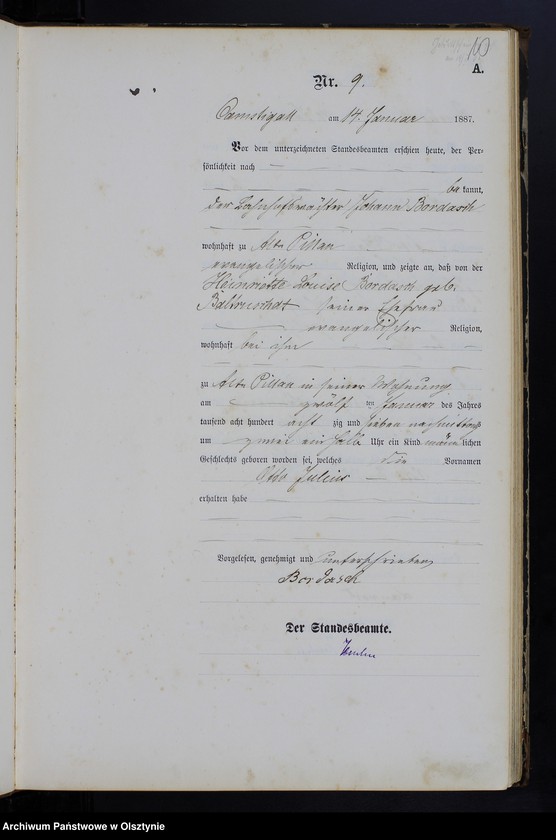 A.
Nr. 9.
Camstigall am 14. Januar 1887.
Vor dem unterzeichneten Standesbeamten erschien heute, der Per-
sönlichkeit nach
bekannt,
der Bahnhofswächter Johann Bordasch
wohnhaft zu Alt Pillau
evangelischer Religion, und zeigte an, daß von der
Henriette Louise Bordasch geb.
seiner Ehefrau
evangelischer Religion,
wohnhaft bei ihm
zu Alt Pillau in seiner Wohnung
am zwölf ten Januar des Jahres
tausend acht hundert acht zig und sieben nachmittags
um zwei ein halb Uhr ein Kind männlichen
Geschlechts geboren worden sei, welches die Vornamen
Otto Julius
erhalten habe
Vorgelesen, genehmigt und unterschrieben
Bordasch
Der Standesbeamte.
Archiwum Państwowe w Olsztynie